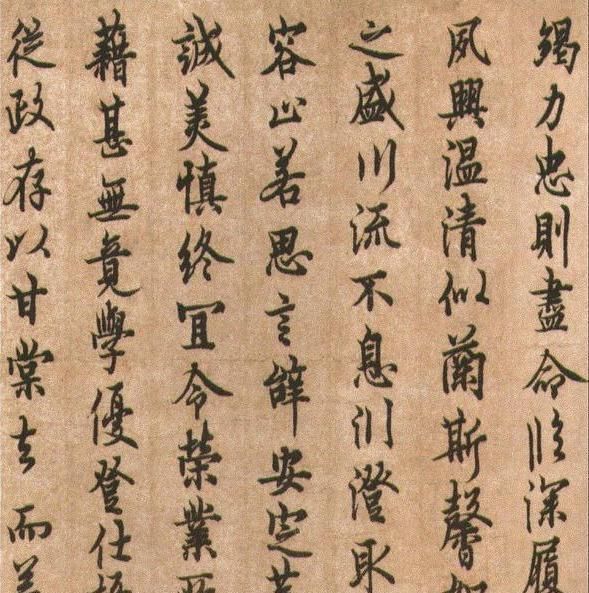 竭力忠則盡命臨深履
夙興温清似蘭斯馨如
之盛川流不息淵澄取
容止若思言辭安定
誠美慎終宜令榮業
藉甚無竟學優登仕
從政存以甘棠去而